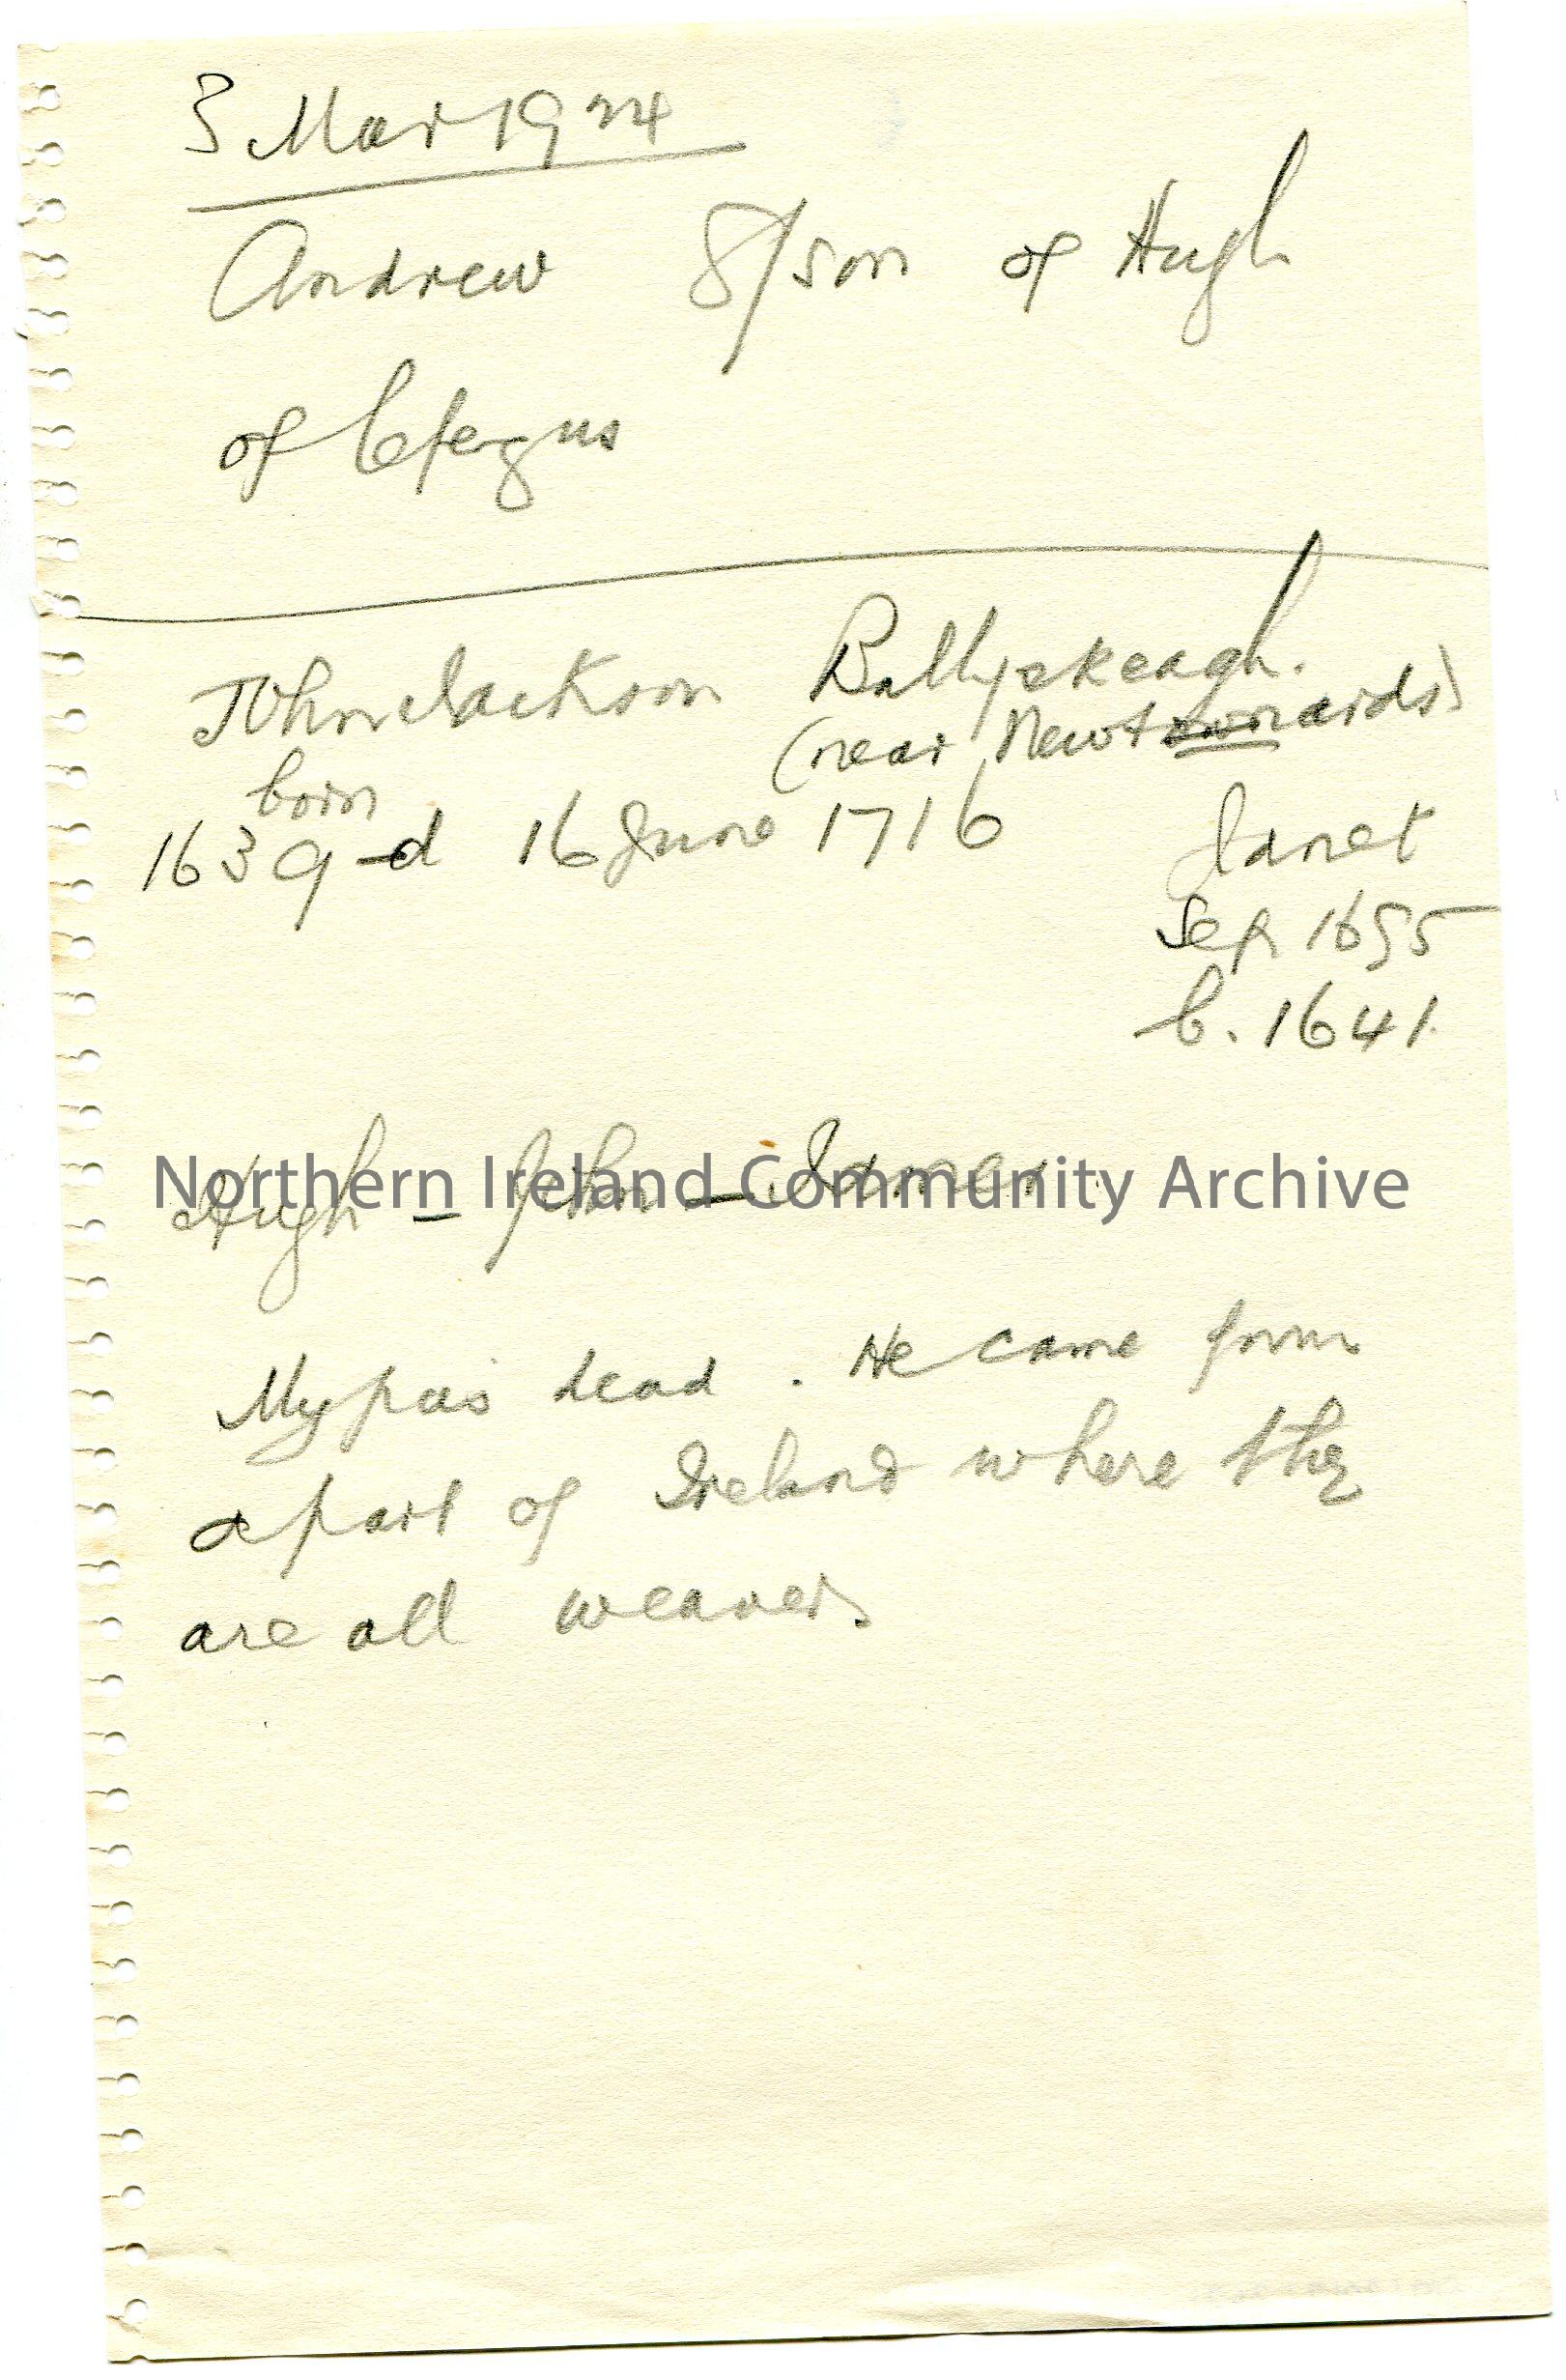 3 Mar 1924
Andrew g/son of Hugh
of C'fergus
John Jackson Ballyskeagh.
(near Newtownards)
born
1639 - d 16 June 1716
Janet
Sep 1695
b. 1641.
Hugh – John – James
Northern Ireland Community Archive
My pa is dead. He came from
a part of Ireland where they
are all weavers